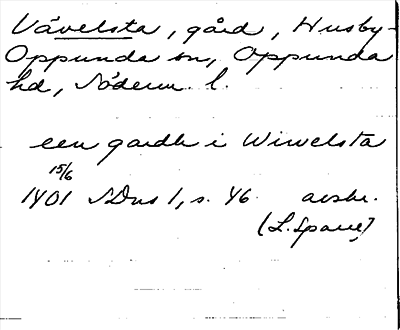 Vävelsta, gård, Husby-
Oppunda sn, Oppunda
hd, Söderm. l.
een gardh i Wiwelsta
15/6
1401 SDns 1, s. 46 avskr.
(L. Sparre)